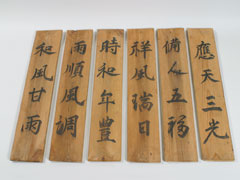 應天三光
備人五福
祥風瑞日
時和年豊
雨順風調
和風甘雨